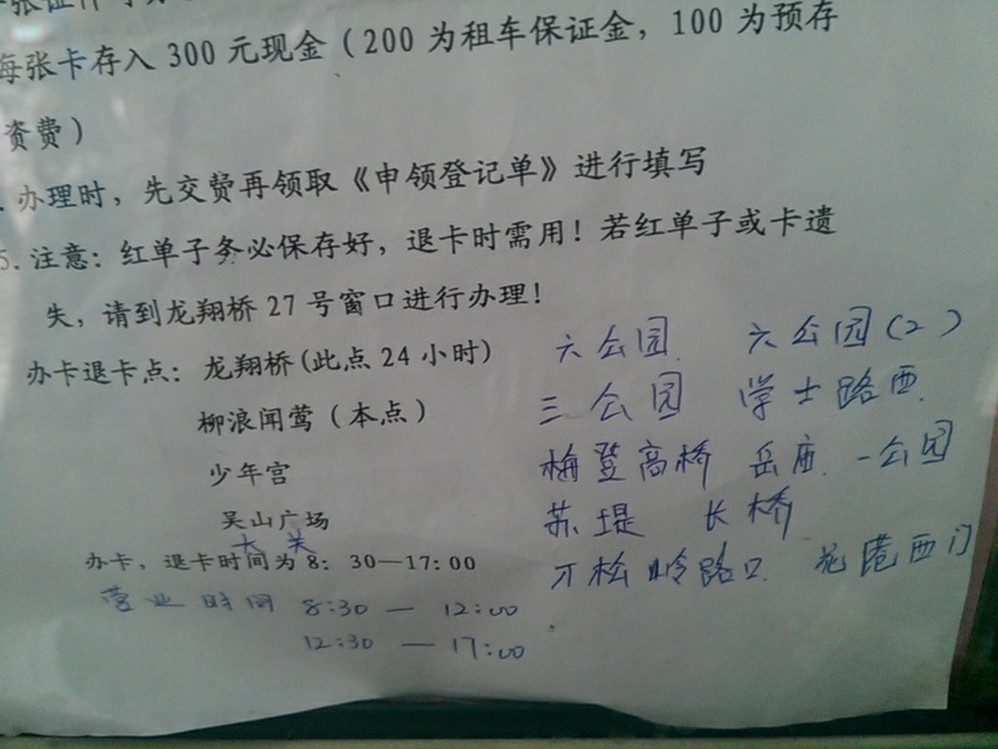 张证件
每张卡存入 300 元现金（200 为租车保证金，100 为预存
资费）
办理时，先交费再领取《申领登记单》进行填写
5. 注意：红单子务必保存好，退卡时需用！若红单子或卡遗
失，请到龙翔桥 27 号窗口进行办理！
办卡退卡点：龙翔桥(此点 24 小时) 六公园 六公园(2)
柳浪闻莺（本点） 三公园 学士路西
少年宫 梅登高桥 岳庙 一公园
吴山广场 苏堤 长桥
大关
办卡，退卡时间为 8：30—17：00 万松岭路口 花港西门
营业时间 8:30 — 12:00
12:30 — 17:00